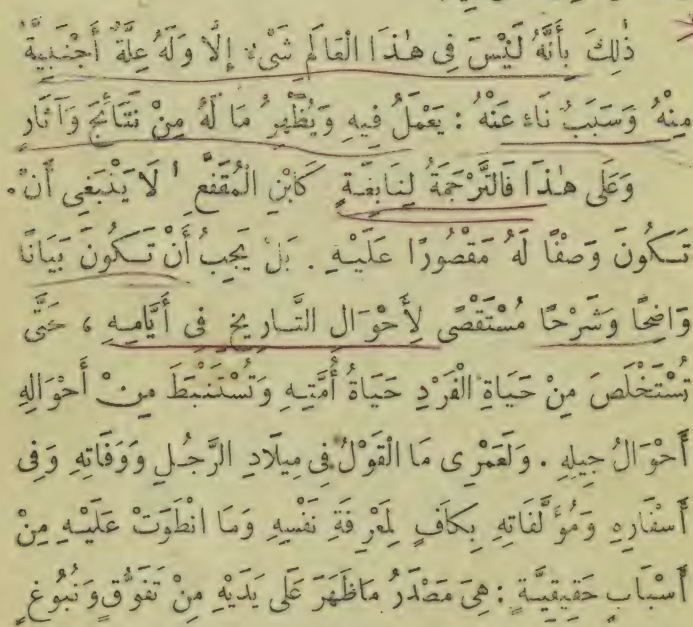 ذٰلِكَ بِأَنَّهُ لَيْسَ فِى هٰذَا الْعَالَمِ شَىْءٌ إِلَّا وَلَهُ عِلَّةٌ أَجْنَبِيَّةٌ
مِنْهُ وَسَبَبٌ نَاءٍ عَنْهُ : يَعْمَلُ فِيهِ وَيُظْهِرُ مَا لَهُ مِنْ نَتَائِجَ وَآثَارٍ
وَعَلَى هٰذَا فَالتَّرْجَمَةُ لِنَابِغَةٍ كَابْنِ الْمُقَفَّعِ ' لَا يَنْبَغِى أَنْ
تَكُونَ وَصْفًا لَهُ مَقْصُورًا عَلَيْهِ . بَلْ يَجِبُ أَنْ تَكُونَ بَيَانًا
وَاضِحًا وَشَرْحًا مُسْتَقْصًى لِأَحْوَالِ التَّارِيخِ فِى أَيَّامِهِ ، حَتَّى
تُسْتَخْلَصَ مِنْ حَيَاةِ الْفَرْدِ حَيَاةُ أُمَّتِهِ وَتُسْتَنْبَطَ مِنْ أَحْوَالِهِ
أَحْوَالُ جِيلِهِ . وَلَعَمْرِى مَا الْقَوْلُ فِى مِيلَادِ الرَّجُلِ وَوَفَاتِهِ وَفِى
أَسْفَارِهِ وَمُؤَلَّفَاتِهِ بِكَافٍ لِمَعْرِفَةِ نَفْسِهِ وَمَا انْطَوَتْ عَلَيْهِ مِنْ
أَسْبَابٍ حَقِيقِيَّةٍ : هِىَ مَصْدَرُ مَاظَهَرَ عَلَى يَدَيْهِ مِنْ تَفَوُّقٍ وَنُبُوغٍ